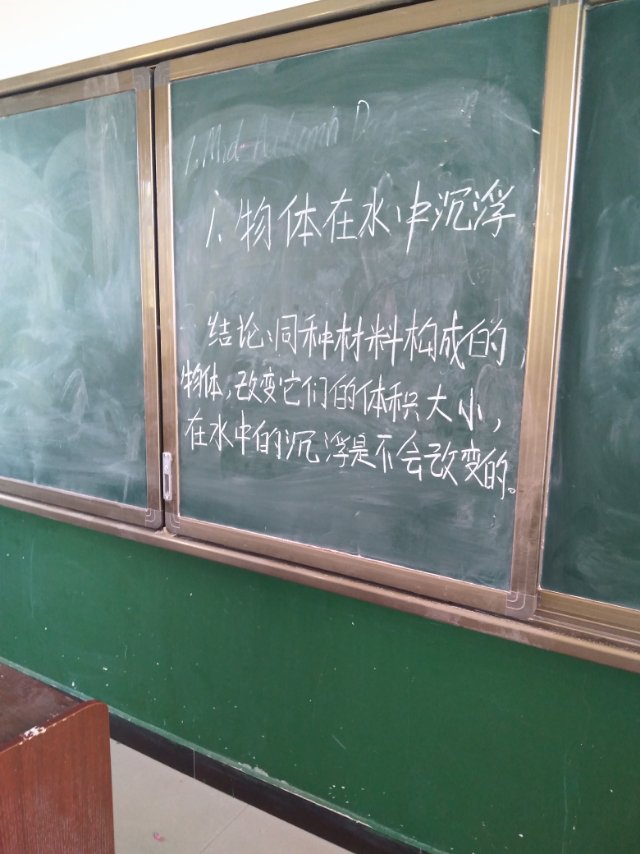 1. Mid-Autumn D
1、物体在水中沉浮
结论:同种材料构成的,
物体,改变它们的体积大小,
在水中的沉浮是不会改变的。